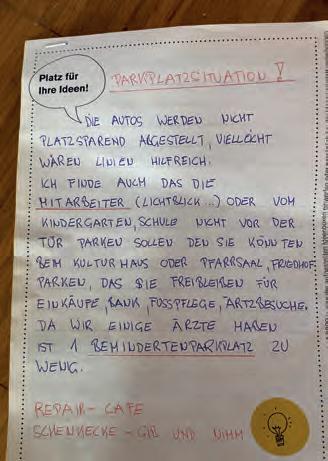 Platz für
Ihre Ideen!
PARKPLATZSITUATION!
DIE AUTOS WERDEN NICHT
PLATZSPAREND ABGESTELLT, VIELLEICHT
WÄREN LINIEN HILFREICH.
ICH FINDE AUCH DAS DIE
MITARBEITER (LICHTBLICK...) ODER VOM
KINDERGARTEN, SCHULE NICHT VOR DER
TÜR PARKEN SOLLEN DEN SIE KÖNNTEN
BEIM KULTURHAUS ODER PFARRSAAL, FRIEDHOF
PARKEN, DAS SIE FREIBLEIBEN FÜR
EINKÄUFE, BANK, FUSSPFLEGE, ARTZBESUCHE.
DA WIR EINIGE ÄRZTE HABEN
IST 1 BEHINDERTENPARKPLATZ ZU
WENIG.
REPAIR-CAFE
SCHENKECKE - GIB UND NIMM